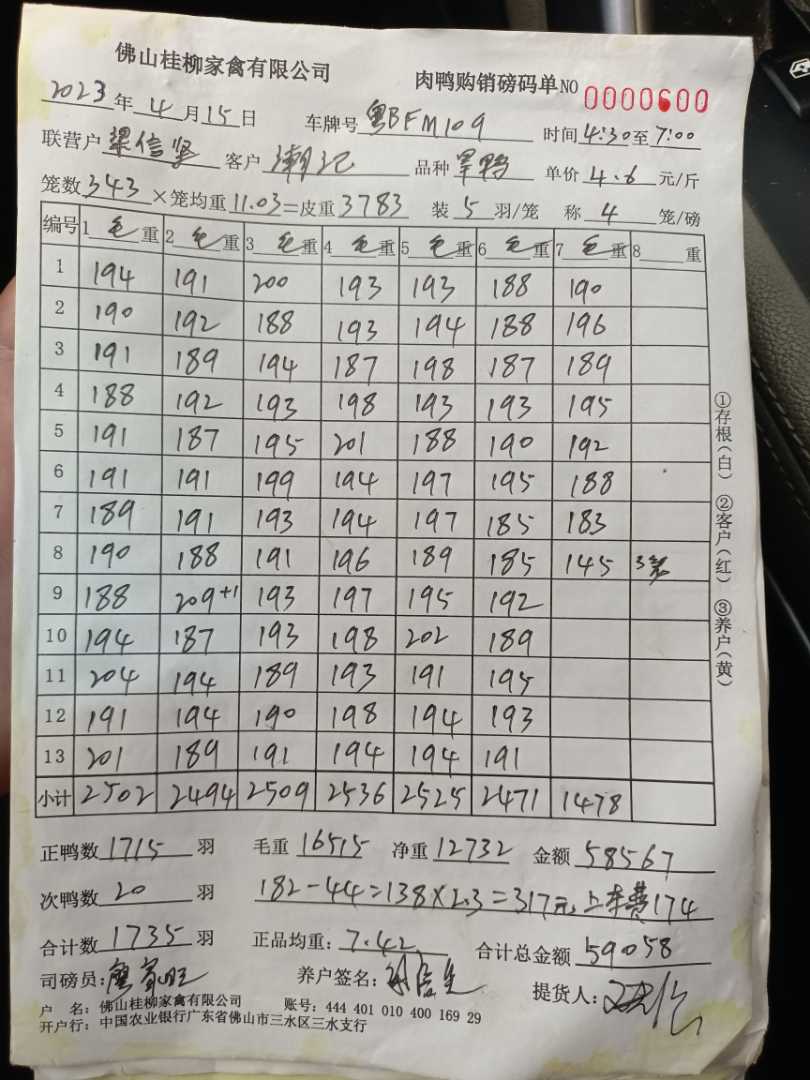 佛山桂柳家禽有限公司 肉鸭购销磅码单NO 0000600
2023年4月15日 车牌号 粤BFM109 时间4:30至7:00
联营户 梁信坚 客户 潮记 品种 单价 4.6 元/斤
笼数343×笼均重11.03=皮重3783 装5羽/笼 称4笼/磅
编号 1毛重 2毛重 3毛重 4毛重 5毛重 6毛重 7毛重 8重
1 194 191 200 193 193 188 190
2 190 192 188 193 194 188 196
3 191 189 194 187 198 187 189
4 188 192 193 198 193 193 195
5 191 187 195 201 188 190 192
6 191 191 199 194 197 195 188
7 189 191 193 194 197 185 183
8 190 188 191 196 189 185 145 3笼
9 188 209+1 193 197 195 192
10 194 187 193 198 202 189
11 204 194 189 193 191 195
12 191 194 190 198 194 193
13 201 189 191 194 194 191
小计 2502 2494 2509 2536 2525 2471 1478
①存根(白) ②客户(红) ③养户(黄)
正鸭数1715羽 毛重16515 净重12732 金额58567
次鸭数20羽 182-44=138×2.3=317元 上车费174
合计数1735羽 正品均重:7.42 合计总金额59058
司磅员: 养户签名: 提货人:
户 名:佛山桂柳家禽有限公司 账号:444 401 010 400 169 29
开户行:中国农业银行广东省佛山市三水区三水支行